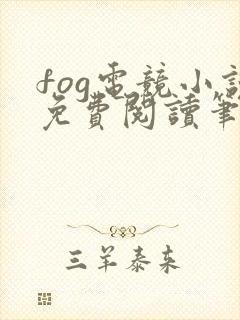 fog電競小說
免費閱讀筆
三羊泰來